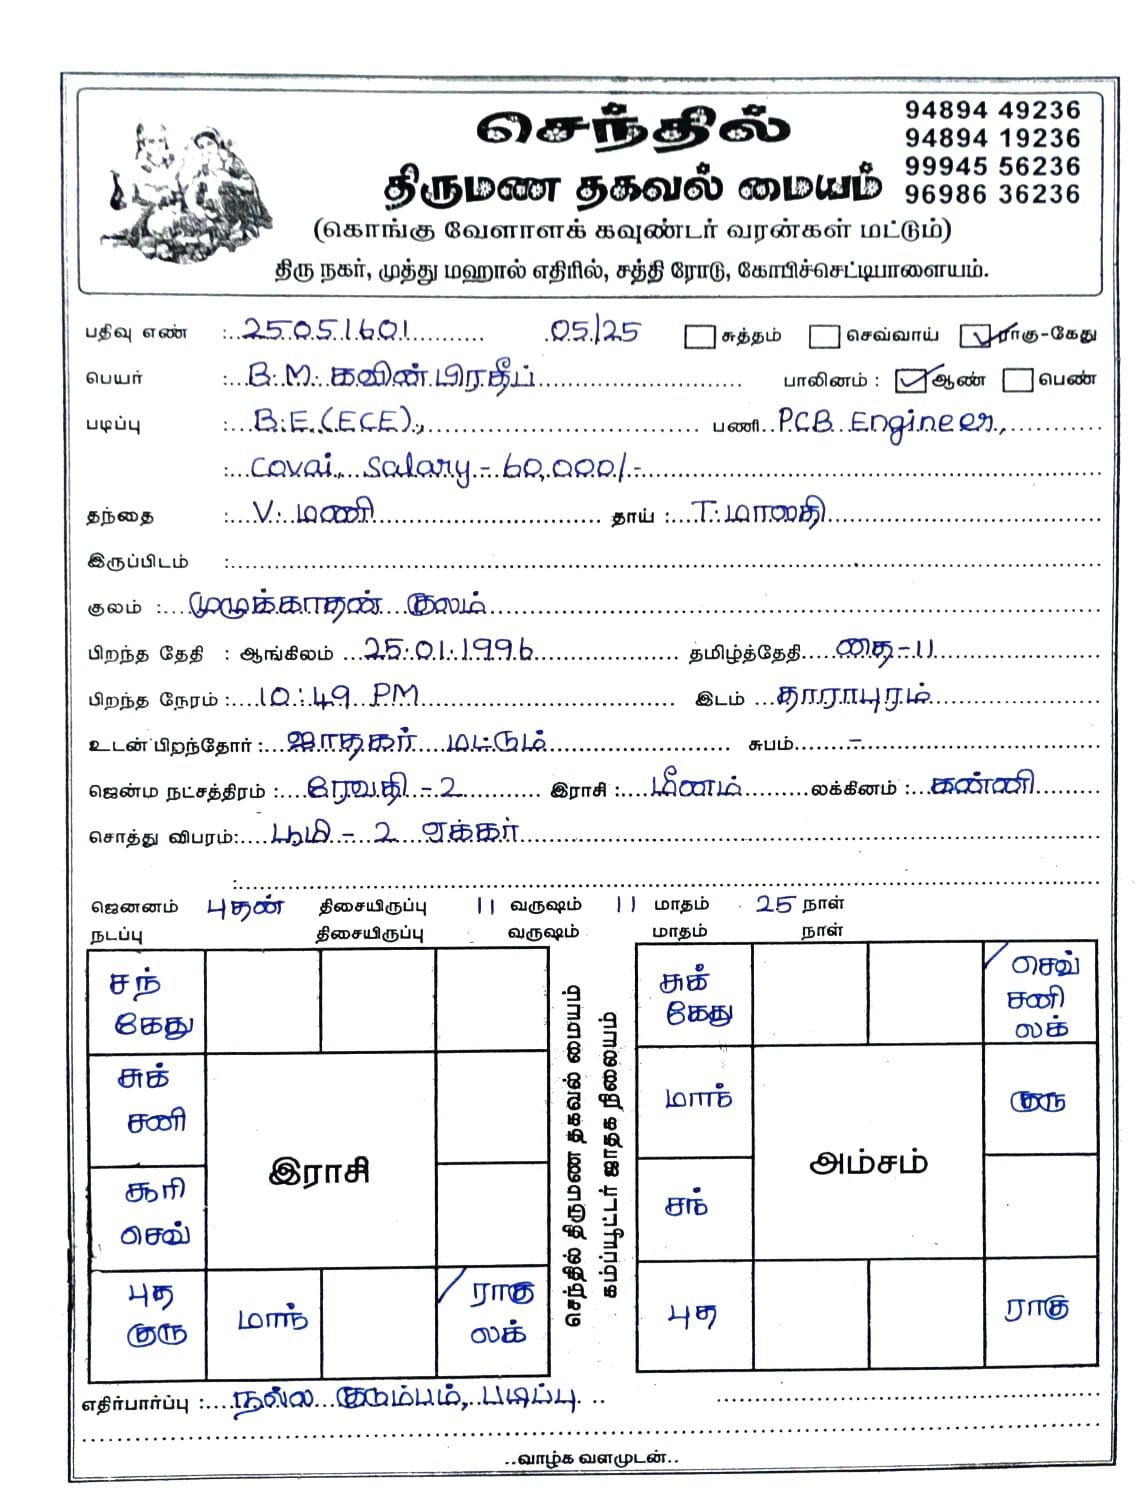 செந்தில்
திருமண தகவல் மையம்
94894 49236
94894 19236
99945 56236
96986 36236
(கொங்கு வேளாளக் கவுண்டர் வரன்கள் மட்டும்)
திரு நகர், முத்து மஹால் எதிரில், சத்தி ரோடு, கோபிச்செட்டிபாளையம்.
பதிவு எண் : 25051601 05/25 சுத்தம் செவ்வாய் ராகு-கேது
பெயர் : B.M. கவின் பிரதீப் பாலினம் : ஆண் பெண்
படிப்பு : B.E.(ECE)., பணி.. PCB Engineer,
: Covai, Salary - 60,000/-
தந்தை : V. மணி தாய் : T. மாலதி
இருப்பிடம் :
குலம் : முழுக்காதன் குலம்
பிறந்த தேதி : ஆங்கிலம் 25.01.1996 தமிழ்த்தேதி தை-11
பிறந்த நேரம் : 10:49 PM இடம் தாராபுரம்
உடன் பிறந்தோர் : ஜாதகர் மட்டும் சுபம் -
ஜென்ம நட்சத்திரம் : ரேவதி - 2 இராசி : மீனம் லக்கினம் : கண்ணி
சொத்து விபரம்: பூமி - 2 ஏக்கர்
:
ஜெனனம் புதண் திசையிருப்பு 11 வருஷம் 11 மாதம் 25 நாள்
நடப்பு திசையிருப்பு வருஷம் மாதம் நாள்
சந்
கேது
சுக்
சணி
சூரி
செவ்
புத
குரு
மாந்
ராகு
லக்
இராசி
செந்தில் திருமண தகவல் மையம்
கம்ப்யூட்டர் ஜாதக நிலையம்
சுக்
கேது
செவ்
சணி
லக்
மாந்
குரு
அம்சம்
சந்
புத
ராகு
எதிர்பார்ப்பு : நல்ல குடும்பம், படிப்பு.
..வாழ்க வளமுடன்..